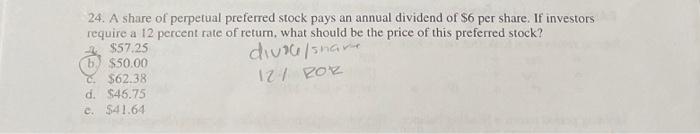 24. A share of perpetual preferred stock pays an annual dividend of $6 per share. If investors
require a 12 percent rate of return, what should be the price of this preferred stock?
a. $57.25
b. $50.00
c. $62.38
d. $46.75
e. $41.64
/share
12% ROR